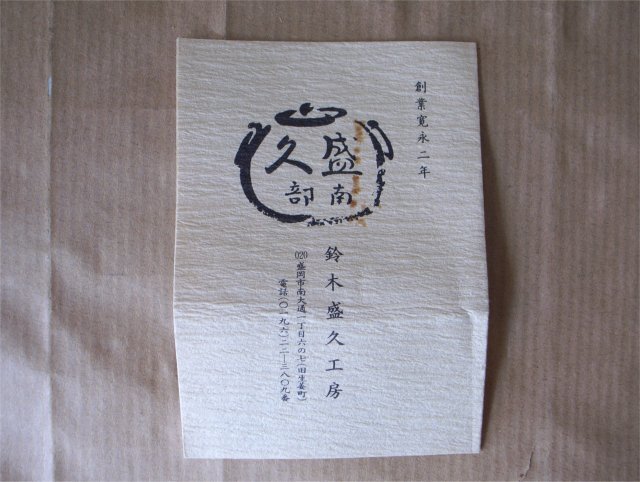 創業寛永二年
盛久
南部
鈴木盛久工房
020 盛岡市南大通一丁目六の七(旧生姜町)
電話(〇一九六)二二―三八〇九番